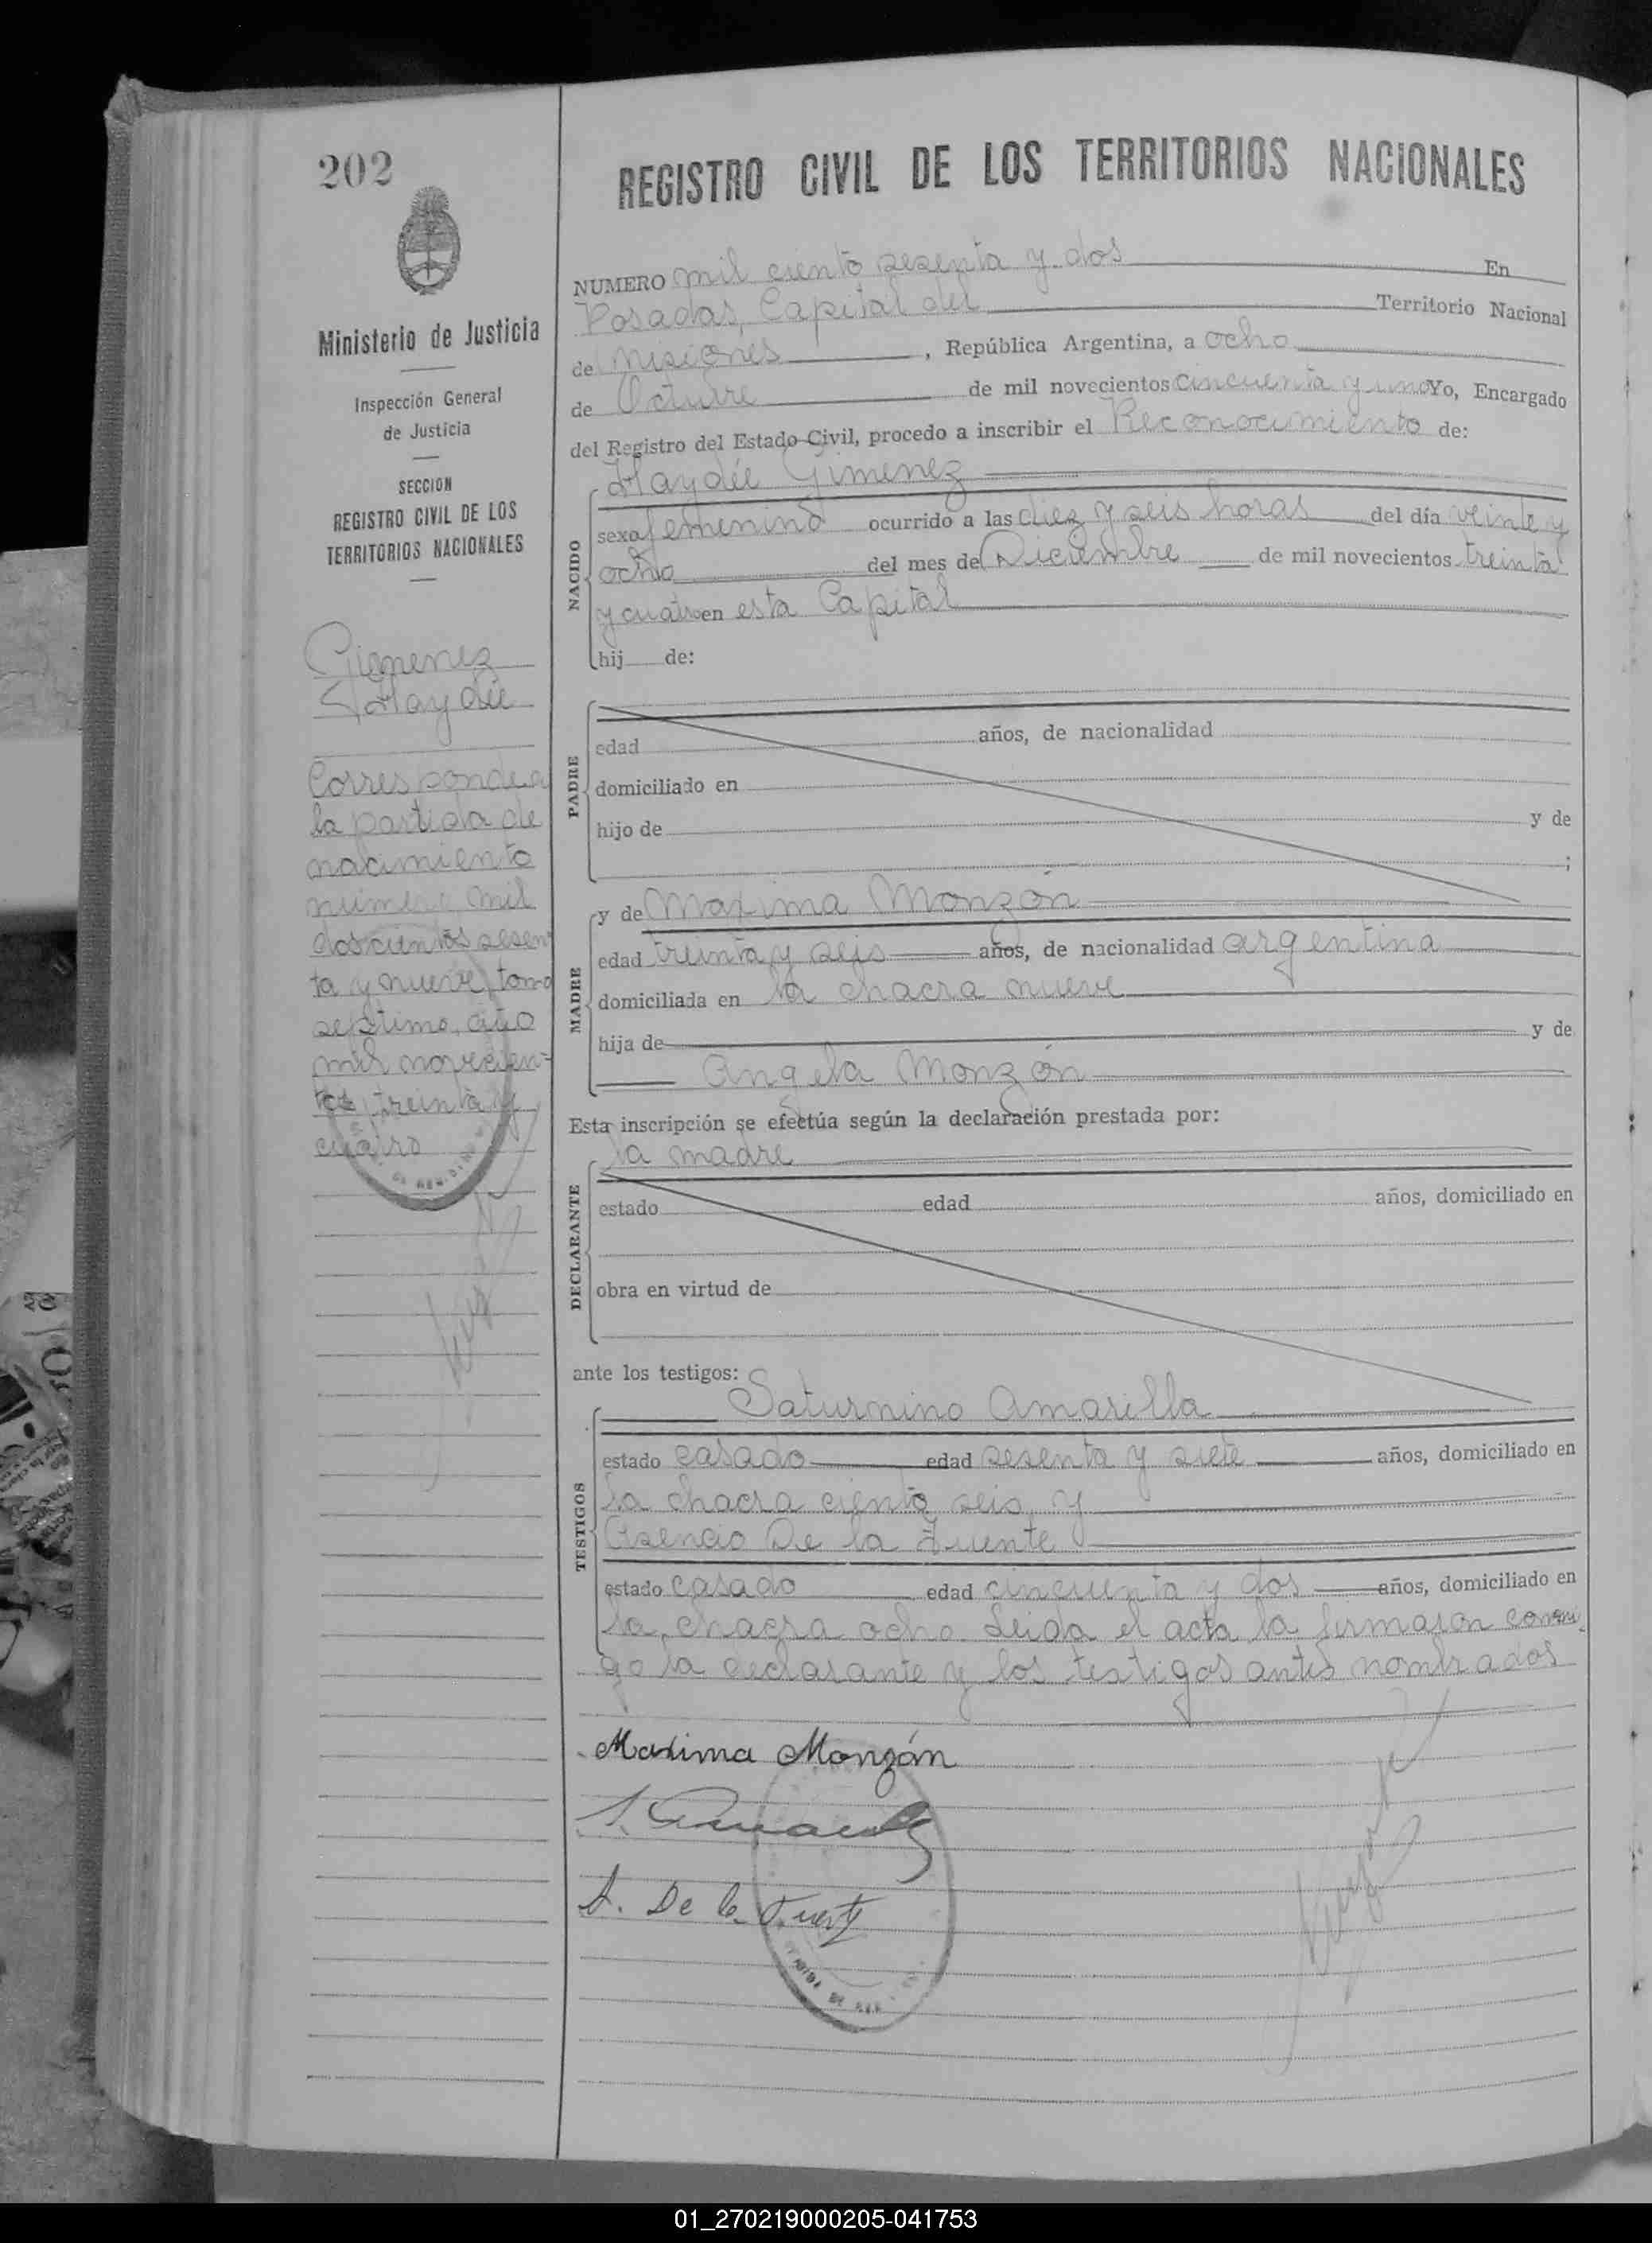 202
REGISTRO CIVIL DE LOS TERRITORIOS NACIONALES
Ministerio de Justicia
Inspección General
de Justicia
SECCION
REGISTRO CIVIL DE LOS
TERRITORIOS NACIONALES
Gimenez
Haydée
Corresponde a
la partida de
nacimiento
número mil
doscientos sesen
ta y nueve, tomo
septimo, año
mil novecien=
tos treinta y
cuatro
NUMERO mil ciento sesenta y dos En
Posadas, Capital del Territorio Nacional
de Misiones, República Argentina, a ocho
de Octubre de mil novecientos cincuenta y uno Yo, Encargado
del Registro del Estado Civil, procedo a inscribir el Reconocimiento de:
Haydée Gimenez
NACIDO
sexo femenino ocurrido a las diez y seis horas del día veinte y
ocho del mes de Diciembre de mil novecientos treinta
y cuatro en esta Capital
hij de:
PADRE
edad años, de nacionalidad
domiciliado en
hijo de y de
;
y de Maxima Monzón
MADRE
edad treinta y seis años, de nacionalidad argentina
domiciliada en la chacra nueve
hija de y de
Angela Monzón
Esta inscripción se efectúa según la declaración prestada por:
la madre
DECLARANTE
estado edad años, domiciliado en
obra en virtud de
ante los testigos:
Saturnino Amarilla
TESTIGOS
estado casado edad sesenta y siete años, domiciliado en
la chacra ciento seis y
Asencio De la Fuente
estado casado edad cincuenta y dos años, domiciliado en
la chacra ocho. Leida el acta la firmaron conmi
go la declarante y los testigos antes nombrados
Maxima Monzón
A. De la Fuente
01_270219000205-041753